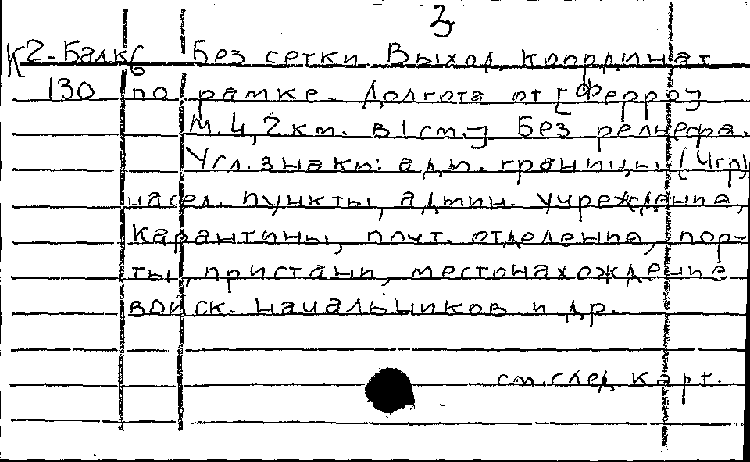 3
К2-Балк/6 Без сетки. Выход координат
130 по рамке. Долгота от [Ферро]
М. 4,2 км. в 1 см.] Без рельефа.
Усл. знаки: адм. границы (4гр),
насел. пункты, админ. учреждения,
карантины, почт. отделения, пор-
ты, пристани, местонахождение
воиск. начальников и др.
см. след. карт.